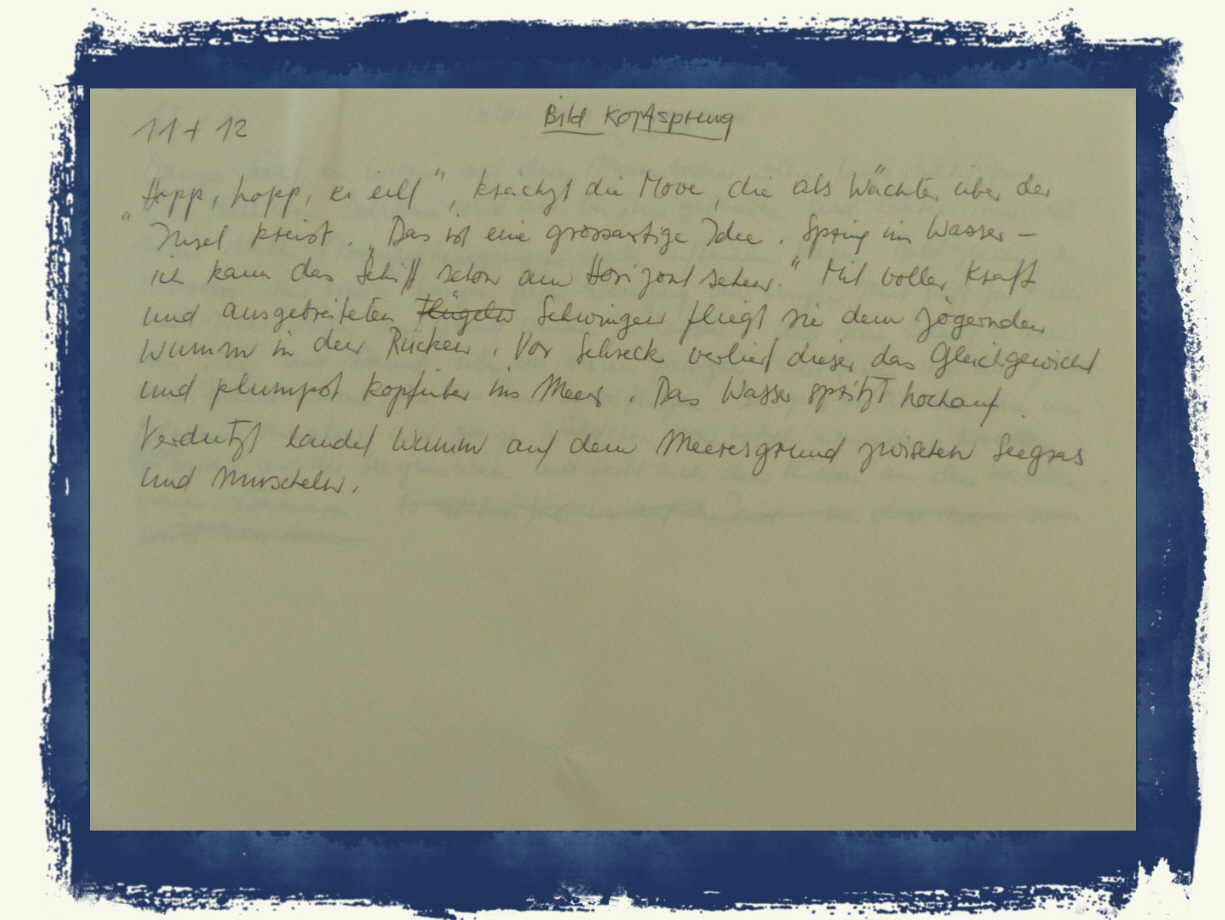 11 + 12
Bild Kopfsprung
"Hopp, hopp, es eilt", krächzt die Möve, die als Wächter über der
Insel kreist. "Das ist eine grossartige Idee. Spring ins Wasser –
ich kann das Schiff schon am Horizont sehen." Mit voller Kraft
und ausgebreiteten Flügeln Schwingen fliegt sie dem zögernden
Wumm in den Rücken. Vor Schreck verliert dieser das Gleichgewicht
und plumpst kopfüber ins Meer. Das Wasser spritzt hochauf.
Verdutzt landet Wumm auf dem Meeresgrund zwischen Seegras
und Muscheln.